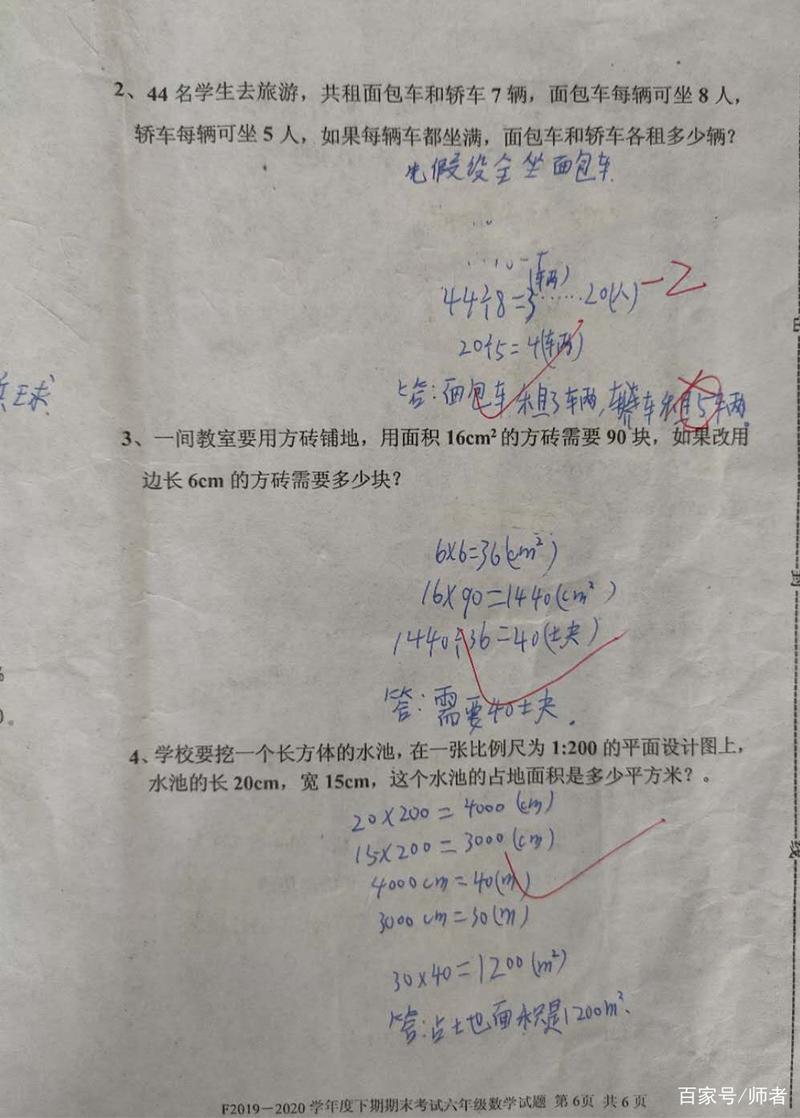 2、44 名学生去旅游，共租面包车和轿车 7 辆，面包车每辆可坐 8 人，
轿车每辆可坐 5 人，如果每辆车都坐满，面包车和轿车各租多少辆？
假设全坐面包车
44÷8=3(辆)……20(人) -2
20÷5=4(辆)
答：面包车租3辆，轿车租5辆。
3、一间教室要用方砖铺地，用面积 16cm² 的方砖需要 90 块，如果改用
边长 6cm 的方砖需要多少块？
6×6=36(cm²)
16×90=1440(cm²)
1440÷36=40(块)
答：需要40块.
4、学校要挖一个长方体的水池，在一张比例尺为 1:200 的平面设计图上，
水池的长 20cm，宽 15cm，这个水池的占地面积是多少平方米？。
20×200=4000(cm)
15×200=3000(cm)
4000cm=40(m)
3000cm=30(m)
30×40=1200(m²)
答：占地面积是1200m².
F2019－2020 学年度下期期末考试六年级数学试题 第 6页 共 6 页
球
封
线
百家号/师者